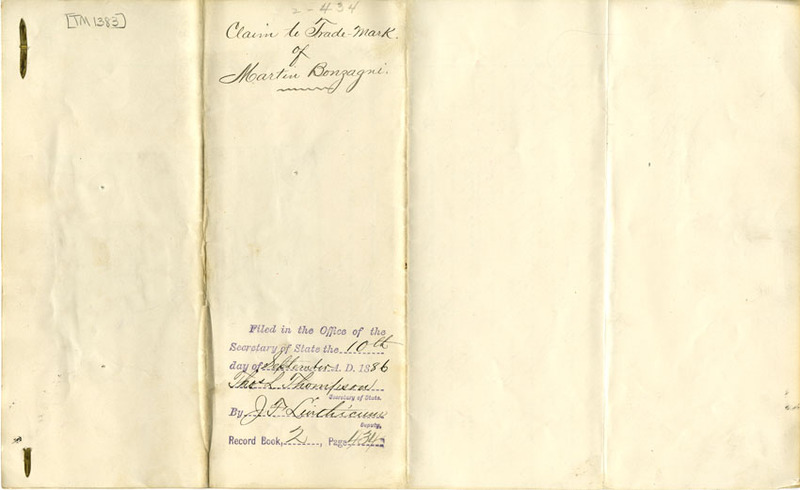 [TM 1383]
2-434
Claim to Trade-Mark.
of
Martin Bonzagni.
Filed in the Office of the
Secretary of State the 10th
day of September A. D. 1886
Thos L Thompson
Secretary of State.
By J F Linthicum
Deputy.
Record Book, 2, Page 434